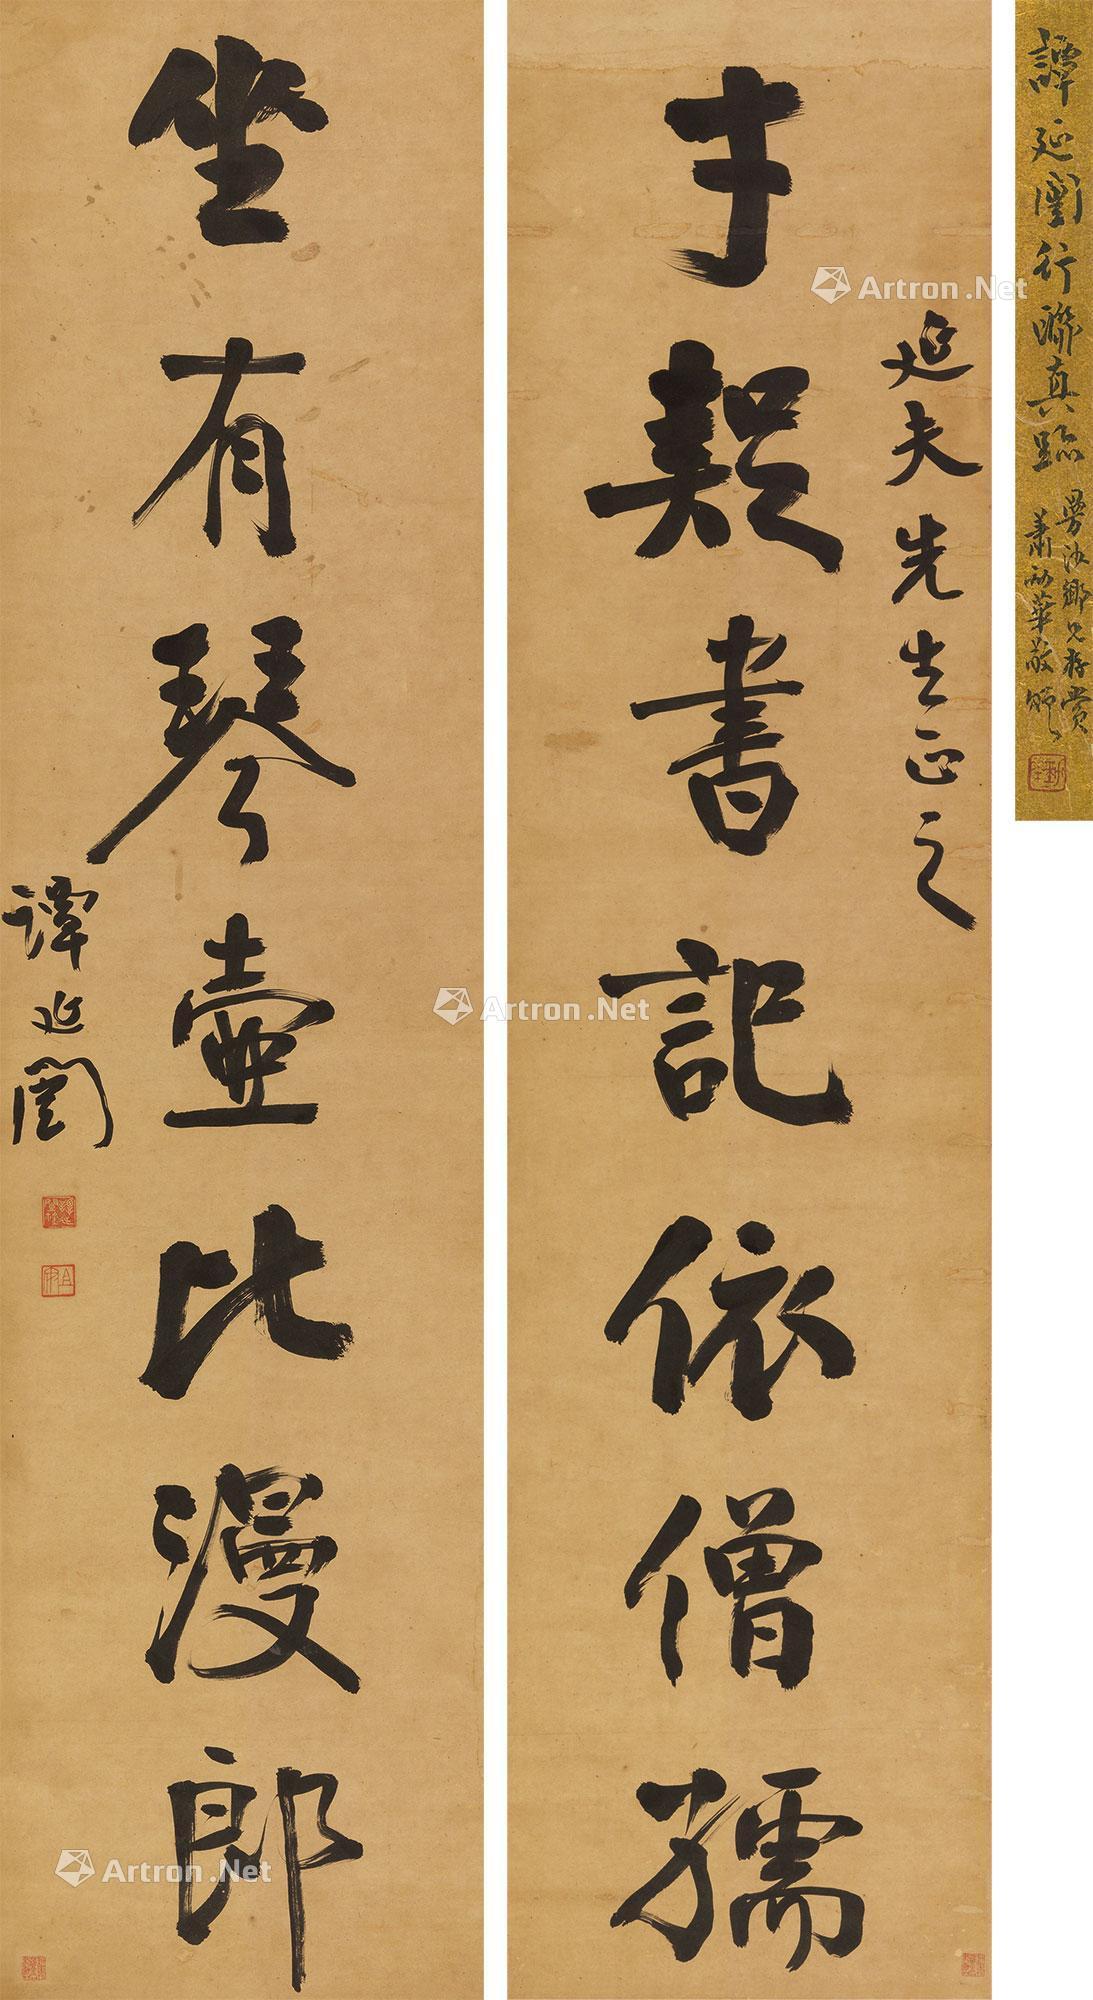 譚延闓行聯真跡
曼沙鄉兄存賞
蕭華敬題
延夫先生正之
才疑書記依僧孺
坐有琴壺比漫郎
譚延闓
Artron.Net
Artron.Net
Artron.Net